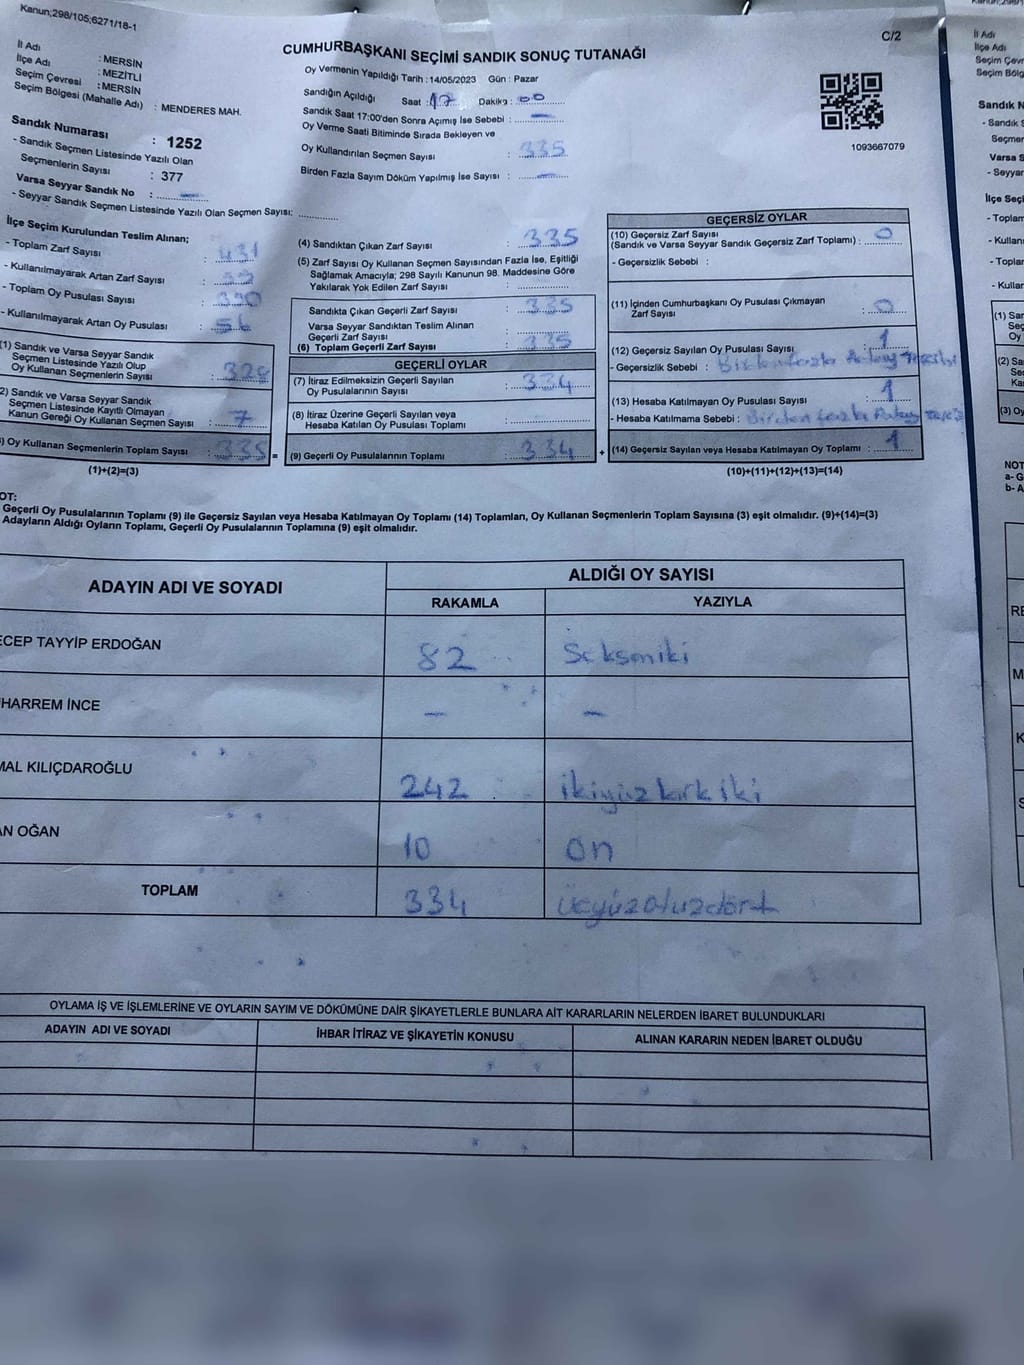 Kanun;298/105;6271/18-1
C/2
CUMHURBAŞKANI SEÇİMİ SANDIK SONUÇ TUTANAĞI
İl Adı : MERSİN
İlçe Adı : MEZİTLİ
Seçim Çevresi : MERSİN
Seçim Bölgesi (Mahalle Adı) : MENDERES MAH.
Sandık Numarası : 1252
- Sandık Seçmen Listesinde Yazılı Olan
Seçmenlerin Sayısı : 377
Varsa Seyyar Sandık No : –
- Seyyar Sandık Seçmen Listesinde Yazılı Olan Seçmen Sayısı:
Oy Vermenin Yapıldığı Tarih :14/05/2023 Gün : Pazar
Sandığın Açıldığı Saat : 17 Dakika : 00
Sandık Saat 17:00'den Sonra Açımış İse Sebebi : –
Oy Verme Saati Bitiminde Sırada Bekleyen ve
Oy Kullandırılan Seçmen Sayısı : 335
Birden Fazla Sayım Döküm Yapılmış İse Sayısı : –
1093667079
İlçe Seçim Kurulundan Teslim Alınan;
- Toplam Zarf Sayısı : 431
- Kullanılmayarak Artan Zarf Sayısı :
- Toplam Oy Pusulası Sayısı : 390
- Kullanılmayarak Artan Oy Pusulası :
(1) Sandık ve Varsa Seyyar Sandık
Seçmen Listesinde Yazılı Olup
Oy Kullanan Seçmenlerin Sayısı : 328
2) Sandık ve Varsa Seyyar Sandık
Seçmen Listesinde Kayıtlı Olmayan
Kanun Gereği Oy Kullanan Seçmen Sayısı : 7
) Oy Kullanan Seçmenlerin Toplam Sayısı : 335 =
(1)+(2)=(3)
(4) Sandıktan Çıkan Zarf Sayısı : 335
(5) Zarf Sayısı Oy Kullanan Seçmen Sayısından Fazla İse, Eşitliği
Sağlamak Amacıyla; 298 Sayılı Kanunun 98. Maddesine Göre
Yakılarak Yok Edilen Zarf Sayısı :
Sandıkta Çıkan Geçerli Zarf Sayısı : 335
Varsa Seyyar Sandıktan Teslim Alınan
Geçerli Zarf Sayısı :
(6) Toplam Geçerli Zarf Sayısı : 335
GEÇERLİ OYLAR
(7) İtiraz Edilmeksizin Geçerli Sayılan
Oy Pusulalarının Sayısı : 334
(8) İtiraz Üzerine Geçerli Sayılan veya
Hesaba Katılan Oy Pusulası Toplamı :
(9) Geçerli Oy Pusulalarının Toplamı : 334 +
GEÇERSİZ OYLAR
(10) Geçersiz Zarf Sayısı
(Sandık ve Varsa Seyyar Sandık Geçersiz Zarf Toplamı) : 0
- Geçersizlik Sebebi :
(11) İçinden Cumhurbaşkanı Oy Pusulası Çıkmayan
Zarf Sayısı : 0
(12) Geçersiz Sayılan Oy Pusulası Sayısı : 1
- Geçersizlik Sebebi : Birden fazla
(13) Hesaba Katılmayan Oy Pusulası Sayısı : 1
- Hesaba Katılmama Sebebi : Birden fazla
(14) Geçersiz Sayılan veya Hesaba Katılmayan Oy Toplamı : 1
(10)+(11)+(12)+(13)=(14)
OT:
Geçerli Oy Pusulalarının Toplamı (9) ile Geçersiz Sayılan veya Hesaba Katılmayan Oy Toplamı (14) Toplamları, Oy Kullanan Seçmenlerin Toplam Sayısına (3) eşit olmalıdır. (9)+(14)=(3)
Adayların Aldığı Oyların Toplamı, Geçerli Oy Pusulalarının Toplamına (9) eşit olmalıdır.
ADAYIN ADI VE SOYADI ALDIĞI OY SAYISI
RAKAMLA YAZIYLA
ECEP TAYYİP ERDOĞAN 82 Sekseniki
HARREM İNCE – –
MAL KILIÇDAROĞLU 242 ikiyüzkırkiki
AN OĞAN 10 on
TOPLAM 334 üçyüzotuzdört
OYLAMA İŞ VE İŞLEMLERİNE VE OYLARIN SAYIM VE DÖKÜMÜNE DAİR ŞİKAYETLERLE BUNLARA AİT KARARLARIN NELERDEN İBARET BULUNDUKLARI
ADAYIN ADI VE SOYADI İHBAR İTİRAZ VE ŞİKAYETİN KONUSU ALINAN KARARIN NEDEN İBARET OLDUĞU